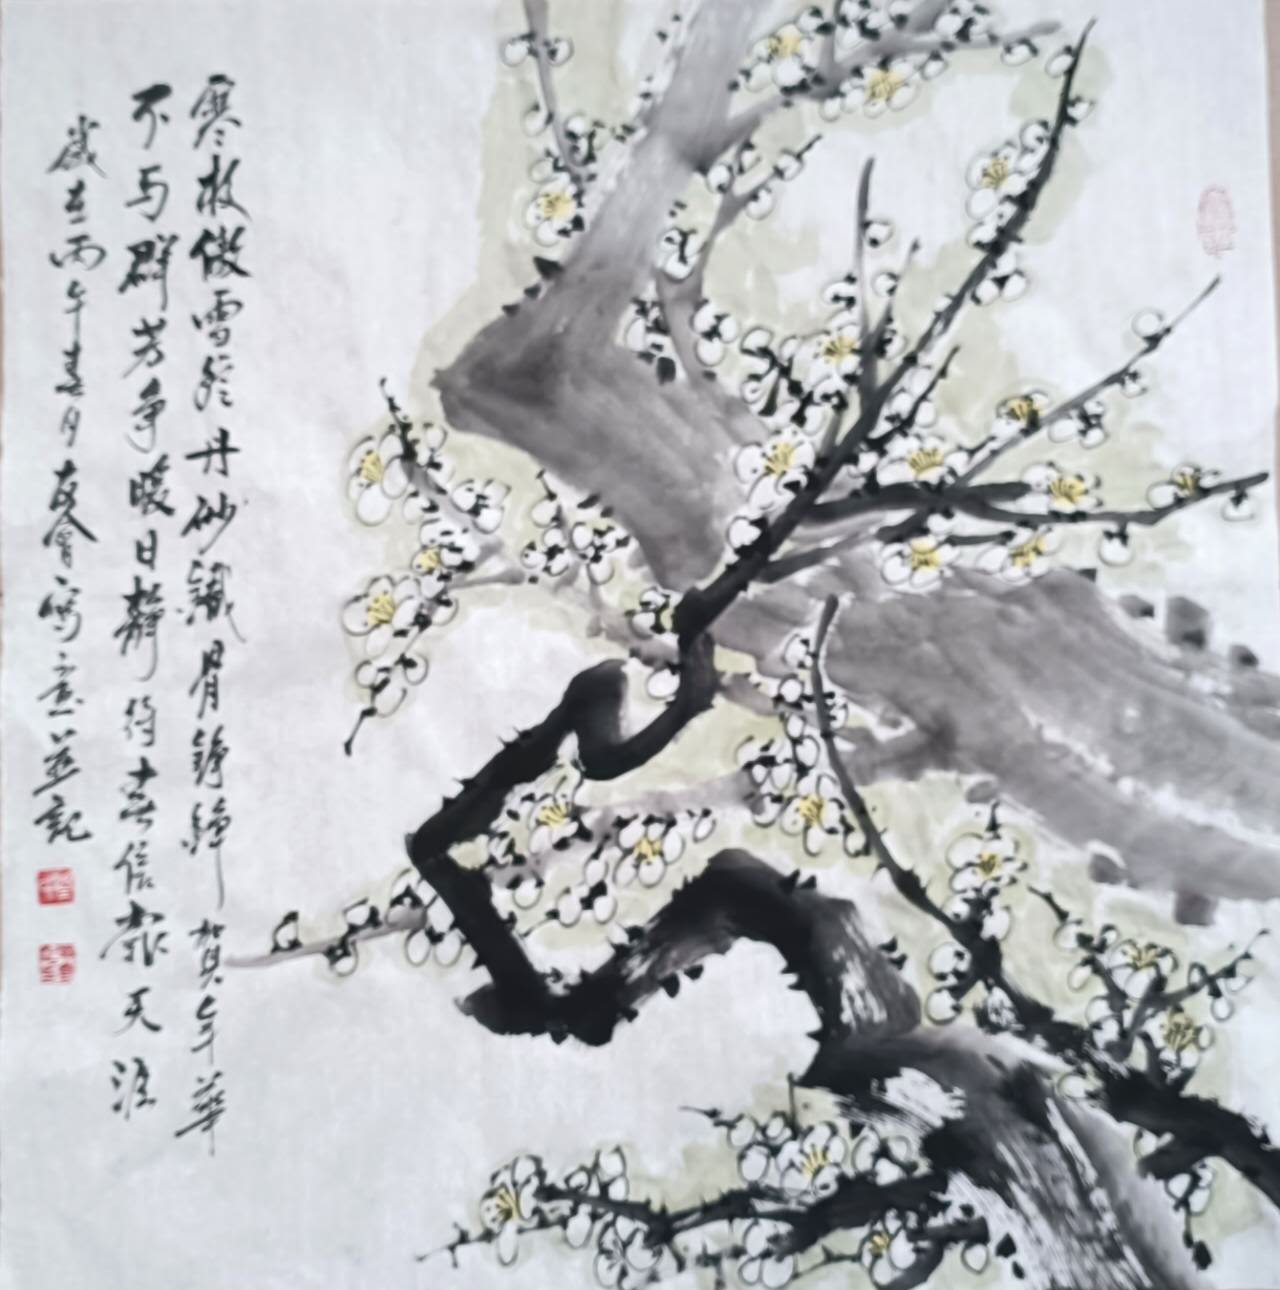 寒枝傲雪综丹砂鐵骨錚錚賀年華
不与群芳争暖日靜待春信報天涯
歲在丙午春月春會寫意並記